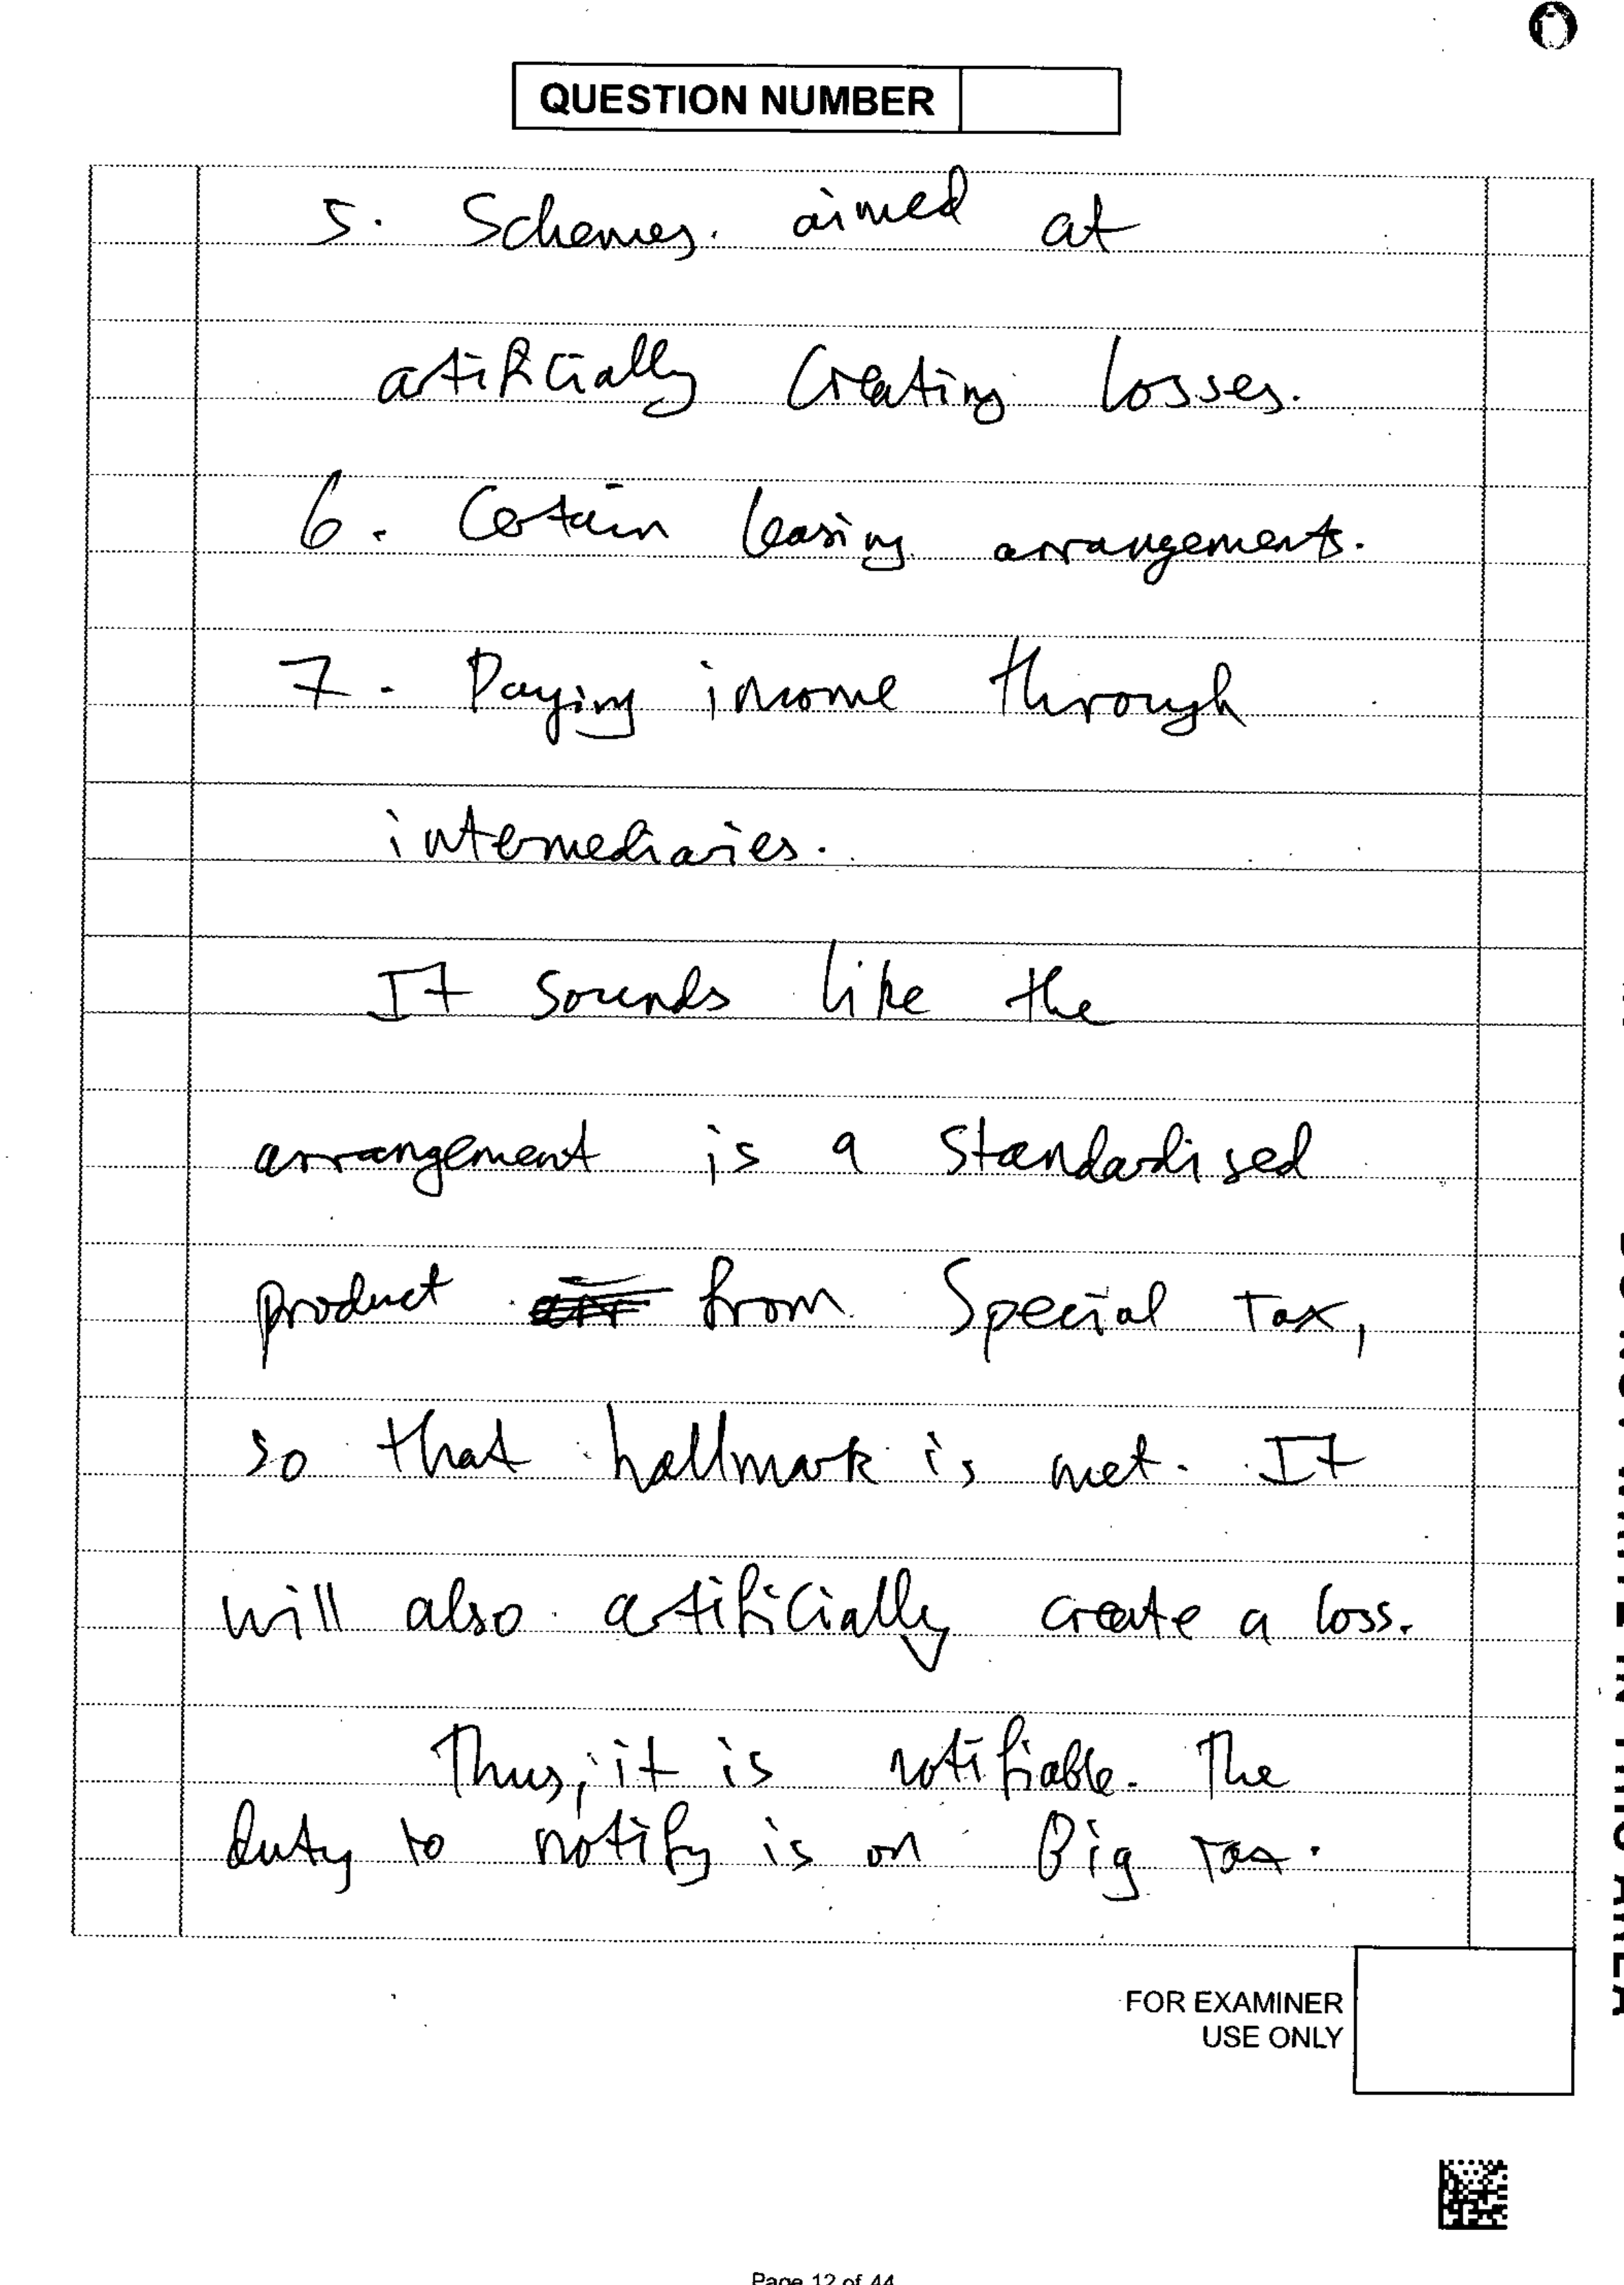 QUESTION NUMBER
5. Schemes aimed at
artificially creating losses.
6. Certain leasing arrangements.
7. Paying income through
intermediaries.
It sounds like the
arrangement is a standardised
product from Special Tax,
so that hallmark is met. It
will also artificially create a loss.
Thus, it is notifiable. The
duty to notify is on Big Tax.
FOR EXAMINER
USE ONLY
Page 12 of 44